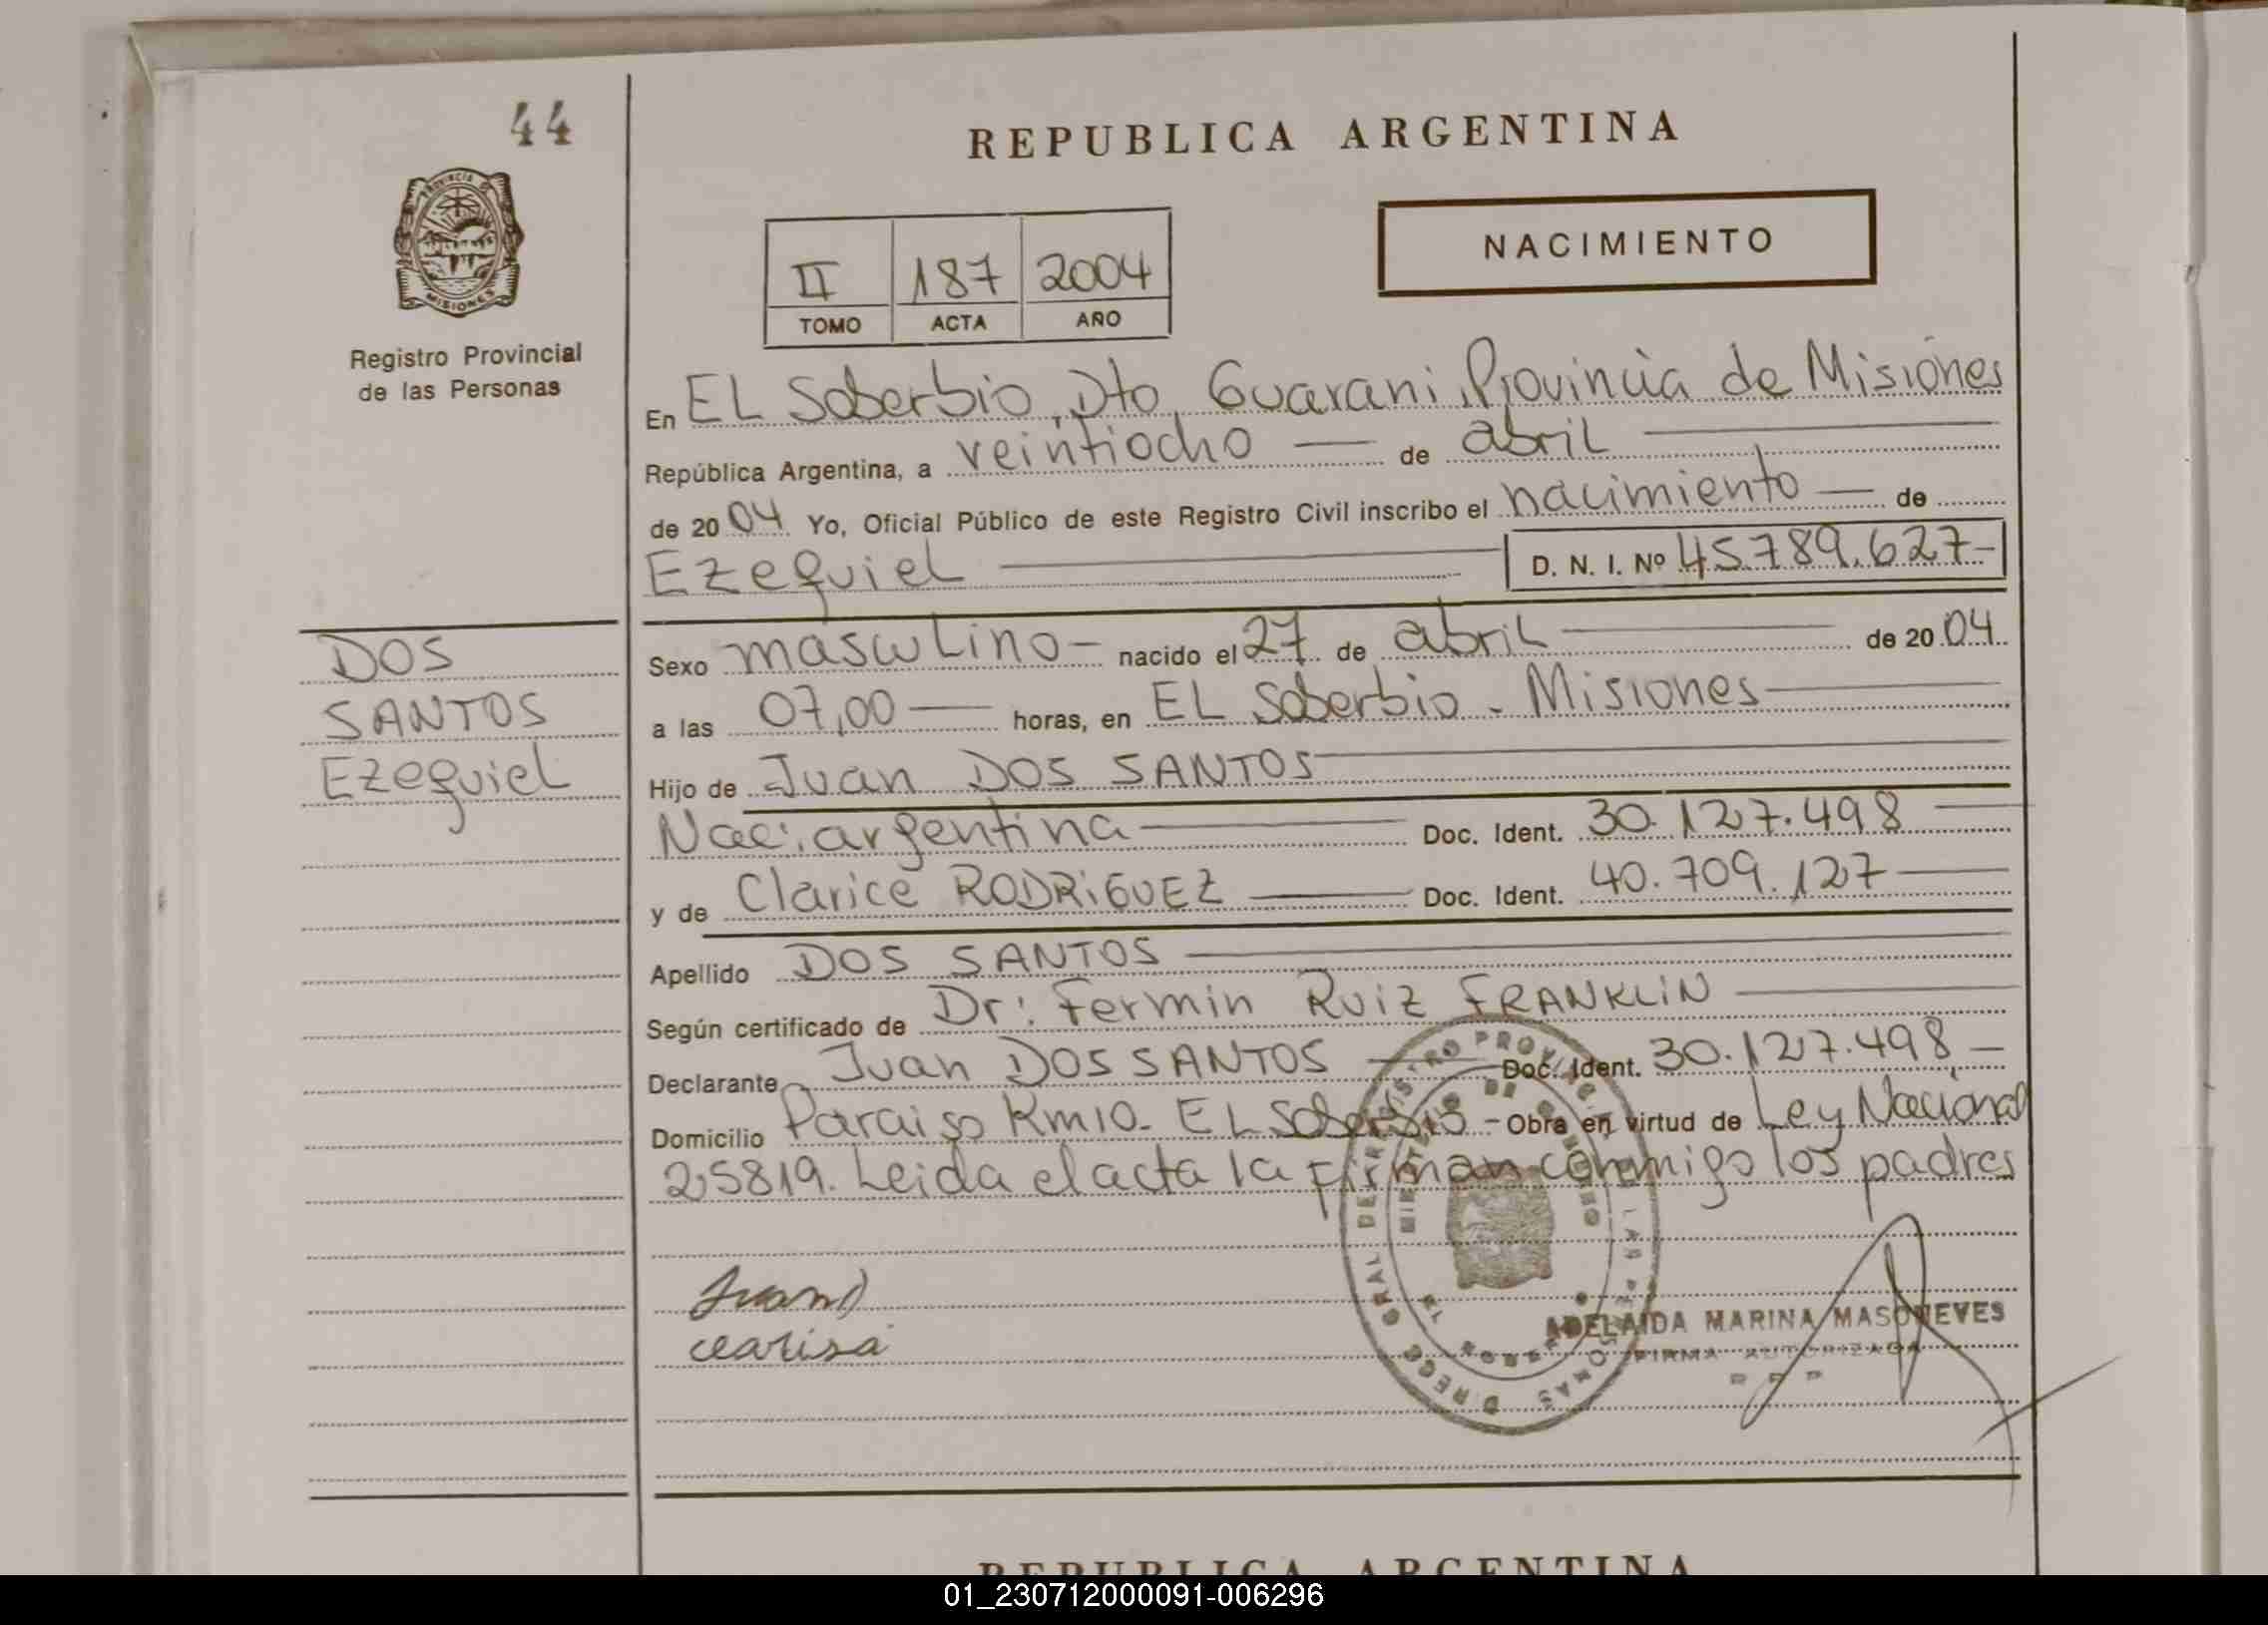 44
REPUBLICA ARGENTINA
PROVINCIA DE
MISIONES
Registro Provincial
de las Personas
NACIMIENTO
II 187 2004
TOMO ACTA AÑO
En EL Soberbio, Dto. Guarani, Provincia de Misiones
República Argentina, a veintiocho — de abril
de 2004 Yo, Oficial Público de este Registro Civil inscribo el nacimiento — de
Ezequiel D. N. I. Nº 45.789.627-
DOS
SANTOS
Ezequiel
Sexo masculino - nacido el 27 de abril de 2004
a las 07,00 — horas, en EL Soberbio - Misiones
Hijo de Juan DOS SANTOS
Nac: argentina Doc. Ident. 30.127.498
y de Clarice RODRIGUEZ Doc. Ident. 40.709.127
Apellido DOS SANTOS
Según certificado de Dr: Fermin Ruiz FRANKLIN
Declarante Juan DOS SANTOS Doc. Ident. 30.127.498 -
Domicilio Paraiso Km10- EL Soberbio - Obra en virtud de Ley Nacional
25819. Leida el acta la firman conmigo los padres
Juan D
clarisa
ADELAIDA MARINA MASONEVES
FIRMA AUTORIZADA
R P P
REPUBLICA ARGENTINA
01_230712000091-006296